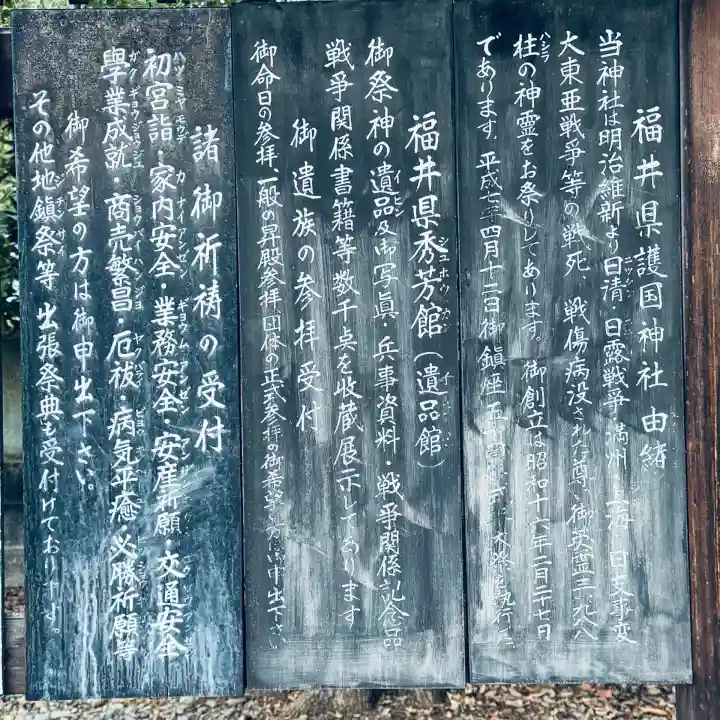 福井県護国神社由緒
当神社は明治維新より日清・日露戦争・満州・上海・日支事変
大東亜戦争等の戦死、戦傷病没された尊い御英霊三
柱の神霊をお祭りしてあります。御創立は昭和十六年二月二十七日
であります。平成七年四月十二日御鎮座五十
福井県秀芳館(遺品館)
御祭神の遺品及御写眞・兵事資料・戦争関係記念品
戦争関係書籍等数千点を收蔵展示してあります
御遺族の参拝受付
御命日の参拝、一般の昇殿参拝、団体の正式参拝の御希望の方は御申出下さい
諸御祈祷の受付
初宮詣・家内安全・業務安全・安産祈願・交通安全
學業成就・商売繁昌・厄祓・病気平癒・必勝祈願等
御希望の方は御申出下さい。
その他地鎮祭等 出張祭典も受付けております。